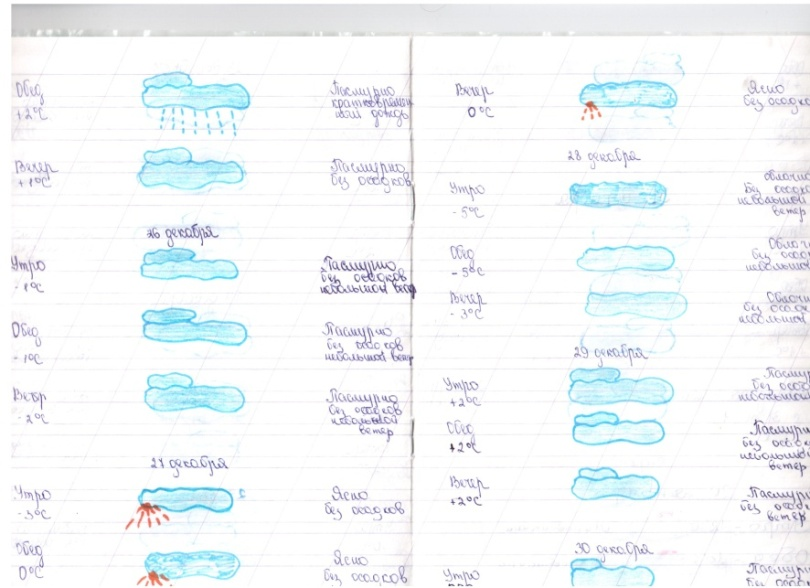 Обед
+2°С
Пасмурно
кратковремен
ный дождь
Вечер
+1°С
Пасмурно
без осадков
26 декабря
Утро
-1°С
Пасмурно
без осадков
небольшой ветер
Обед
-1°С
Пасмурно
без осадков
небольшой ветер
Вечер
-2°С
Пасмурно
без осадков
небольшой
ветер
27 декабря
Утро
-3°С
Ясно
без осадков
Обед
0°С
Ясно
без осадков
Вечер
0°С
Ясно
без осадко
28 декабря
Утро
-5°С
облачно
без осадко
небольшой
ветер
Обед
-5°С
Облачн
без осад
небольшой
Вечер
-3°С
Облачн
без осадк
небольшой
29 декабря
Утро
+2°С
Пасмур
без осад
небольшой
Обед
+2°С
Пасмурн
без осадк
небольшой
ветер
Вечер
+2°С
Пасмурн
без осадк
ветер
30 декабря
Утро
Пасмур